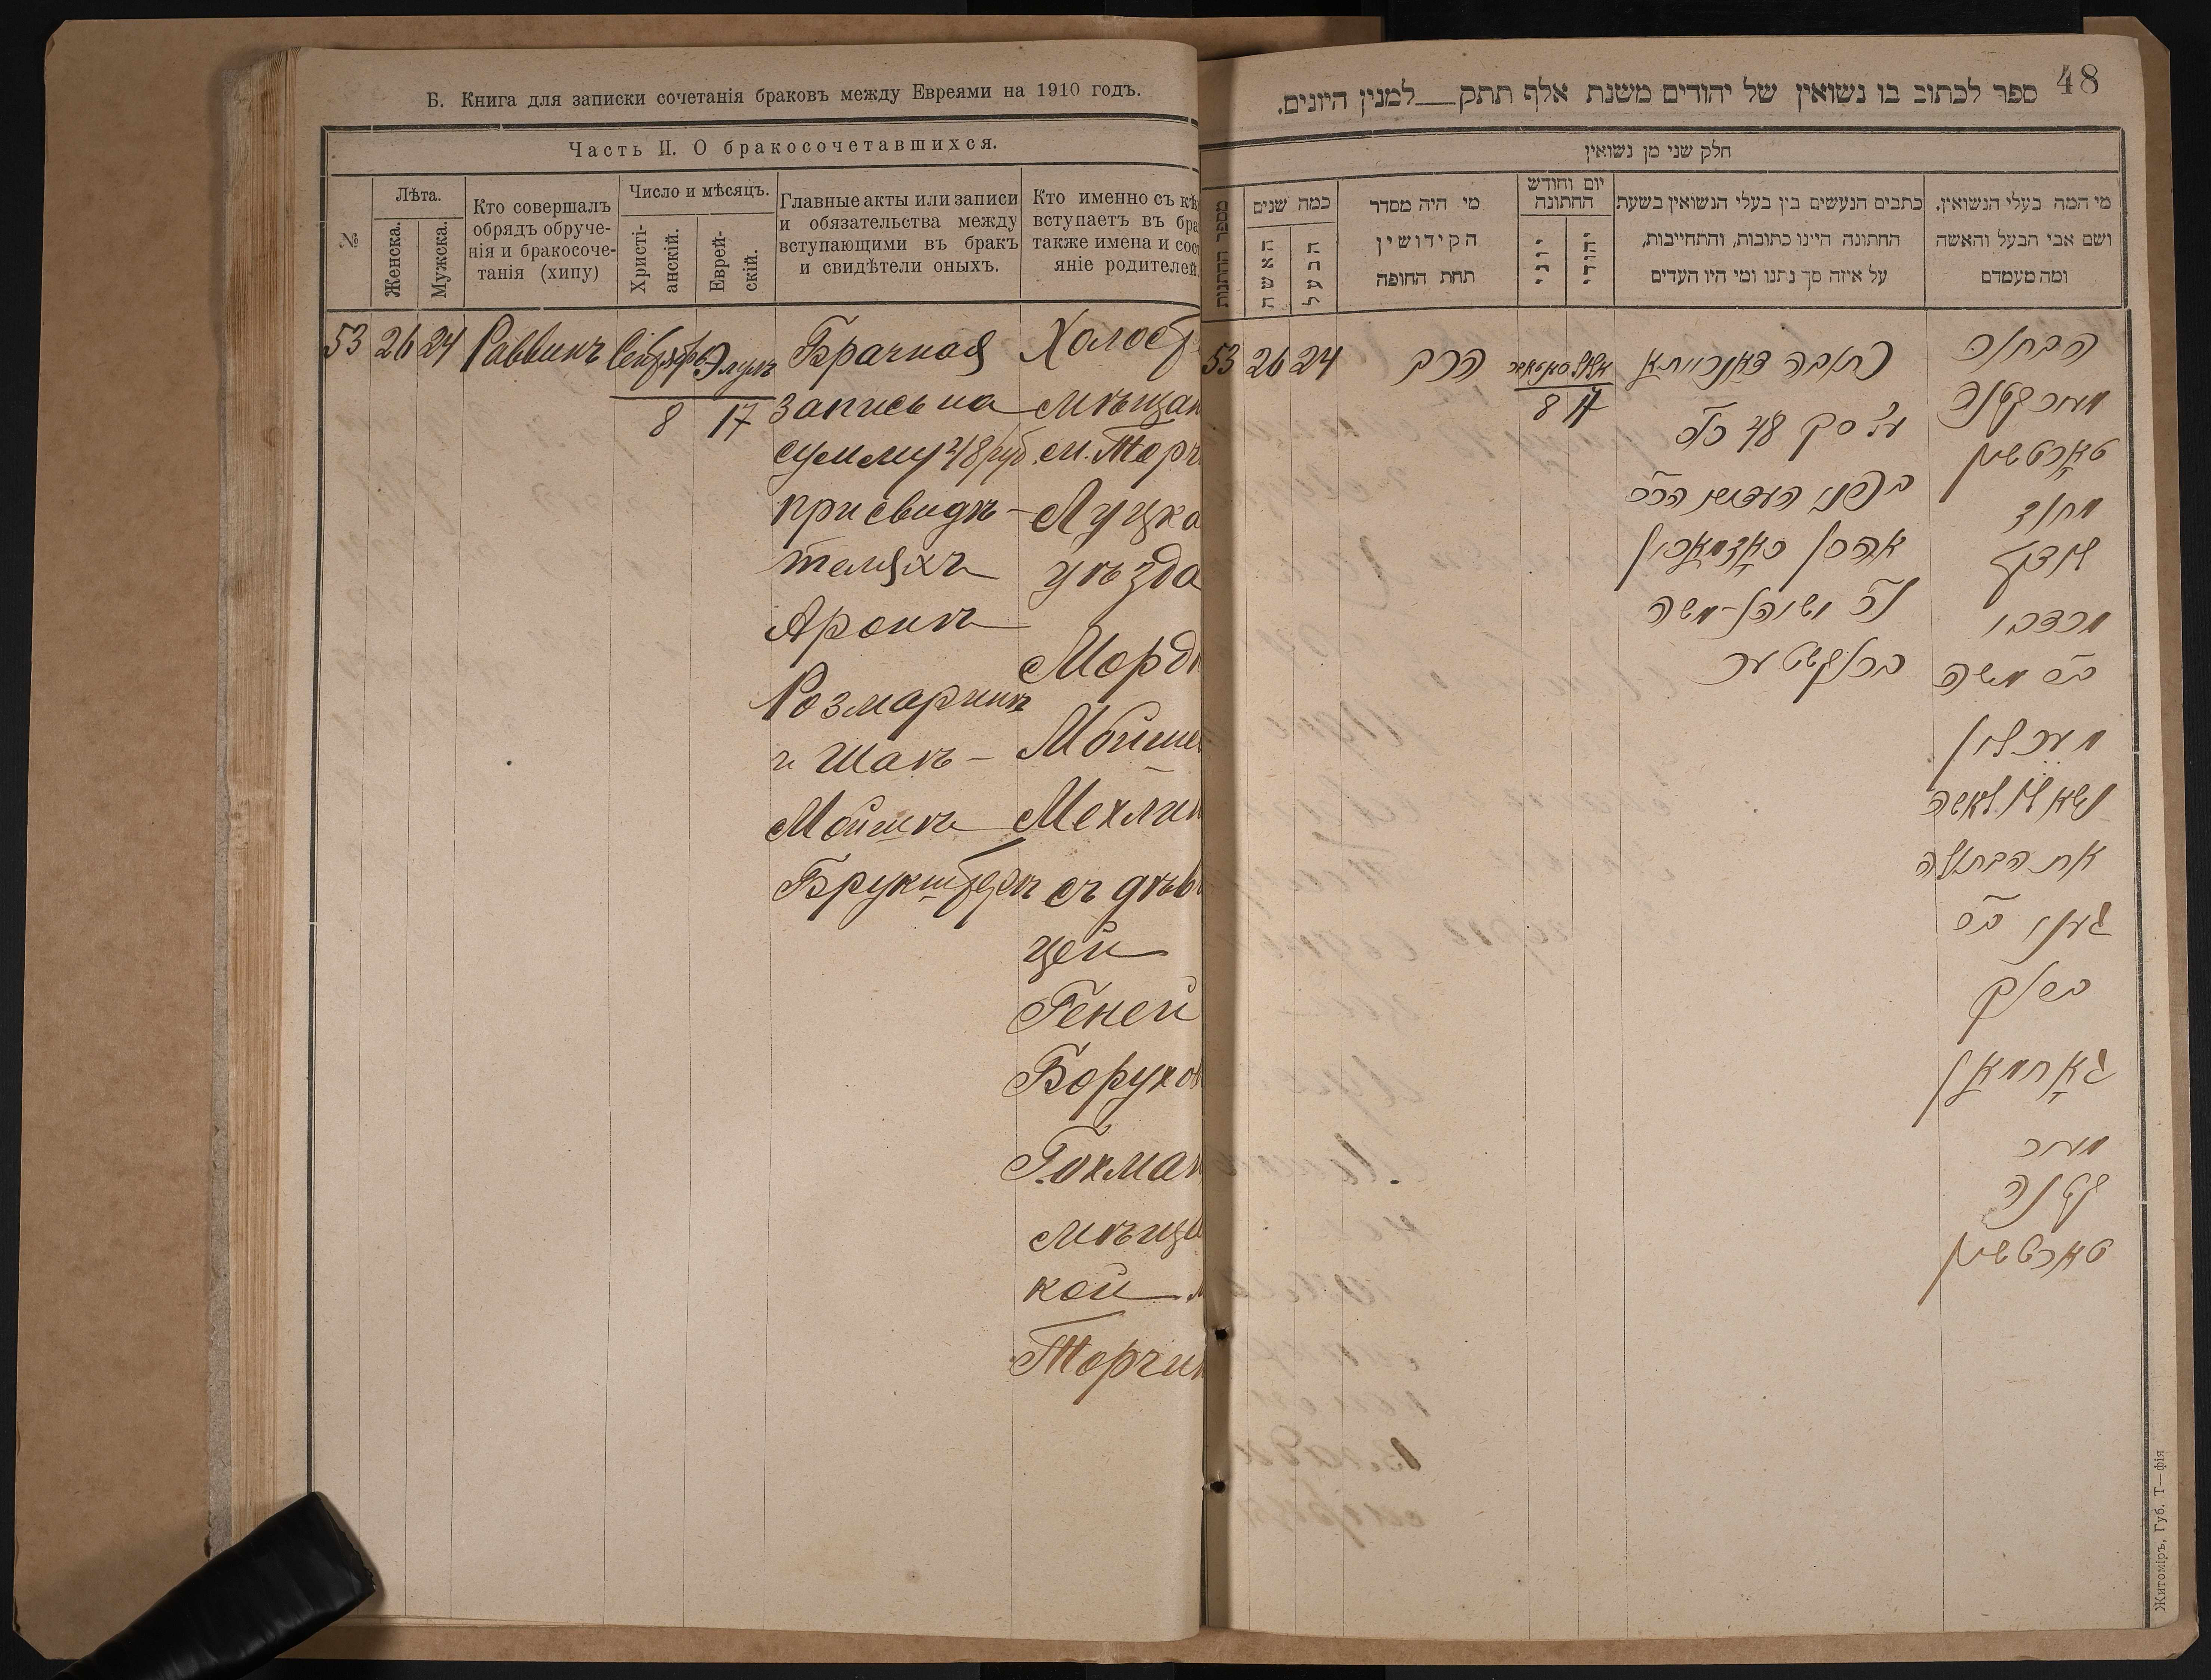 Б. Книга для записки сочетанія браковъ между Евреями на 1910 годъ.
Часть II. О бракосочетавшихся.
№
Лѣта.
Женска.
Мужска.
Кто совершалъ
обрядъ обруче-
нія и бракосоче-
танія (хипу)
Число и мѣсяцъ.
Христі-
анскій.
Еврей-
скій.
Главные акты или записи
и обязательства между
вступающими въ бракъ
и свидѣтели оныхъ.
Кто именно съ кѣ
вступаетъ въ бра
также имена и сос
яніе родителей
53
26
24
Раввинъ
Сентябрь
8
Элулъ
17
Брачная
запись на
сумму 48 руб.
при свидѣ-
теляхъ
Аронъ
Розмаринъ
и Шаъ-
Мойшъ
Брукштеръ
Холост
мѣщан
м. Торч
Луцка
уѣзда
Морд
Мойше
Мехлин
съ дѣви
цей
Геней
Борухов
Гохман
мѣща
кой м
Торчин
48
ספר לכתוב בו נשואין של יהודים משנת אלף תתק__למנין היונים.
חלק שני מן נשואין
מספר החתנות
כמה שנים
האשה
הבעל
מי היה מסדר
הקידושין
תחת החופה
יום וחודש
החתונה
יוני
יהודי
כתבים הנעשים בין בעלי הנשואין בשעת
החתונה היינו כתובות, והתחייבות,
על איזה סך נתנו ומי היו העדים
מי המה בעלי הנשואין.
ושם אבי הבעל והאשה
ומה מעמדם
53
26
24
הרב
8
17
כתובה דאורייתא
ע״ סך 48 רכ
בפני העדים הר״ר
אהרן ראזמארין
ברוקשטער
הבחור
מער קטנה
טארטשין
מחוז
לוצק
מרדכי
ב״ר משה
מעכלין
נשא לו לאשה
את הבתולה
געני ב״ר
ברוך
גאחמאן
מער
קטנה
טארטשין
Житоміръ, Губ. Т—фія